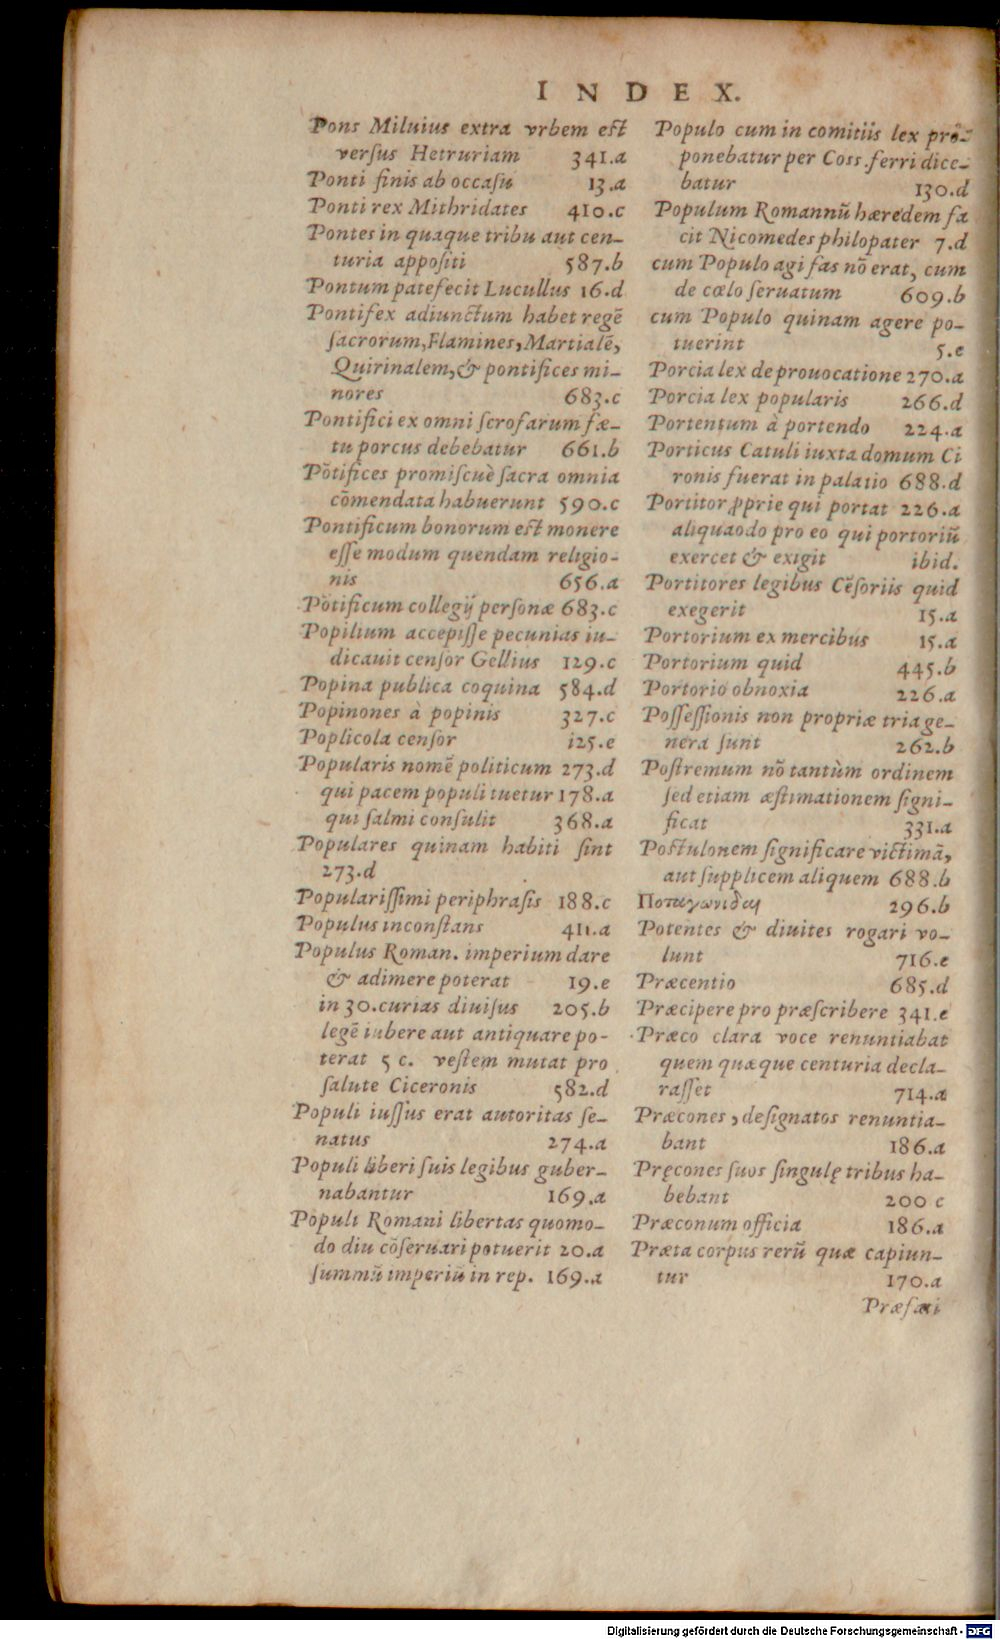 INDEX.
Pons Miluius extra vrbem est
versus Hetruriam 341.a
Ponti finis ab occasu 13.a
Ponti rex Mithridates 410.c
Pontes in quaque tribu aut cen-
turia appositi 587.b
Pontum patefecit Lucullus 16.d
Pontifex adiunctum habet regē
sacrorum, Flamines, Martialē,
Quirinalem, & pontifices mi-
nores 683.c
Pontifici ex omni scrofarum fæ-
tu porcus debebatur 661.b
Pōtifices promiscuè sacra omnia
cōmendata habuerunt 590.c
Pontificum bonorum est monere
esse modum quendam religio-
nis 656.a
Pōtificum collegij personæ 683.c
Popilium accepisse pecunias iu-
dicauit censor Gellius 129.c
Popina publica coquina 584.d
Popinones à popinis 327.c
Poplicola censor 125.e
Popularis nomē politicum 273.d
qui pacem populi tuetur 178.a
qui salmi consulit 368.a
Populares quinam habiti sint
273.d
Popularissimi periphrasis 188.c
Populus inconstans 411.a
Populus Roman. imperium dare
& adimere poterat 19.e
in 30. curias diuisus 205.b
legē iubere aut antiquare po-
terat 5 c. vestem mutat pro
salute Ciceronis 582.d
Populi iussus erat autoritas se-
natus 274.a
Populi liberi suis legibus guber-
nabantur 169.a
Populi Romani libertas quomo-
do diu cōseruari potuerit 20.a
summū imperiū in rep. 169.a
Populo cum in comitiis lex pro-
ponebatur per Coss. ferri dice-
batur 130.d
Populum Romannū hæredem fa
cit Nicomedes philopater 7.d
cum Populo agi fas nō erat, cum
de cœlo seruatum 609.b
cum Populo quinam agere po-
tuerint 5.e
Porcia lex de prouocatione 270.a
Porcia lex popularis 266.d
Portentum à portendo 224.a
Porticus Catuli iuxta domum Ci
ronis fuerat in palatio 688.d
Portitor ꝓprie qui portat 226.a
aliquaodo pro eo qui portoriū
exercet & exigit ibid.
Portitores legibus Cēsoriis quid
exegerit 15.a
Portorium ex mercibus 15.a
Portorium quid 445.b
Portorio obnoxia 226.a
Possessionis non propriæ tria ge-
nera sunt 262.b
Postremum nō tantùm ordinem
sed etiam æstimationem signi-
ficat 331.a
Postulonem significare victimā,
aut supplicem aliquem 688.b
Ποπαγωνίδαι 296.b
Potentes & diuites rogari vo-
lunt 716.e
Præcentio 685.d
Præcipere pro præscribere 341.e
Præco clara voce renuntiabat
quem quæque centuria decla-
rasset 714.a
Præcones, designatos renuntia-
bant 186.a
Pręcones suos singulę tribus ha-
bebant 200 c
Præconum officia 186.a
Præta corpus rerū quæ capiun-
tur 170.a
Præfati
Digitalisierung gefördert durch die Deutsche Forschungsgemeinschaft - DFG